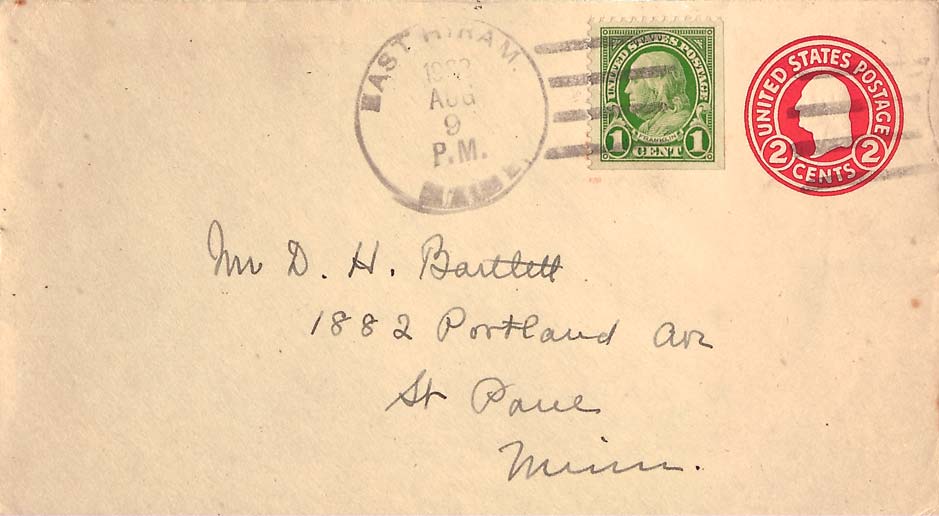 EAST HIRAM.
AUG
9
P.M.
MAINE
UNITED STATES POSTAGE
FRANKLIN
1 CENT 1
UNITED STATES POSTAGE
2 CENTS 2
Mr D. H. Bartlett
1882 Portland Ave
St Paul
Minn.